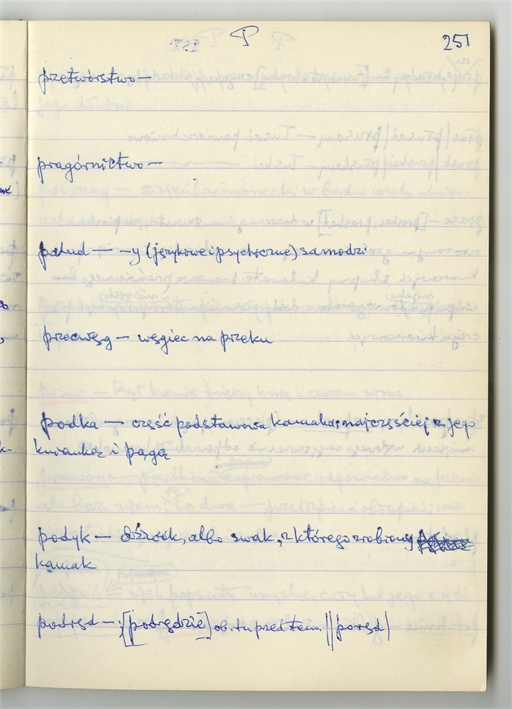 P 251
przetwórstwo –
pragórnictwo –
pałud – -y (językowe i psychiczne) samodzi
przecwęg – węgiec na przeku
podka – część podstawowa kamaka, najczęściej z jego
kwiauką i pągą
podyk – dźwiek, albo swak, z którego zrobiony
kamak
podrąd – ; [podrądzie] ob. tu przedtem || porąd |